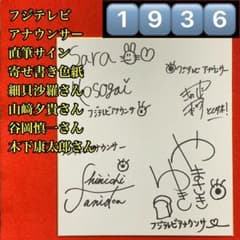 フジテレビ
アナウンサー
直筆サイン
寄せ書き色紙
細貝沙羅さん
山﨑夕貴さん
谷岡慎一さん
木下康太郎さん
1936
Sara
Hosogai
フジテレビアナウンサー
フジテレビ アナウンサー
アナウンサー
Shinichi
Tanioka
やまさき
ゆき
フジテレビアナウンサー